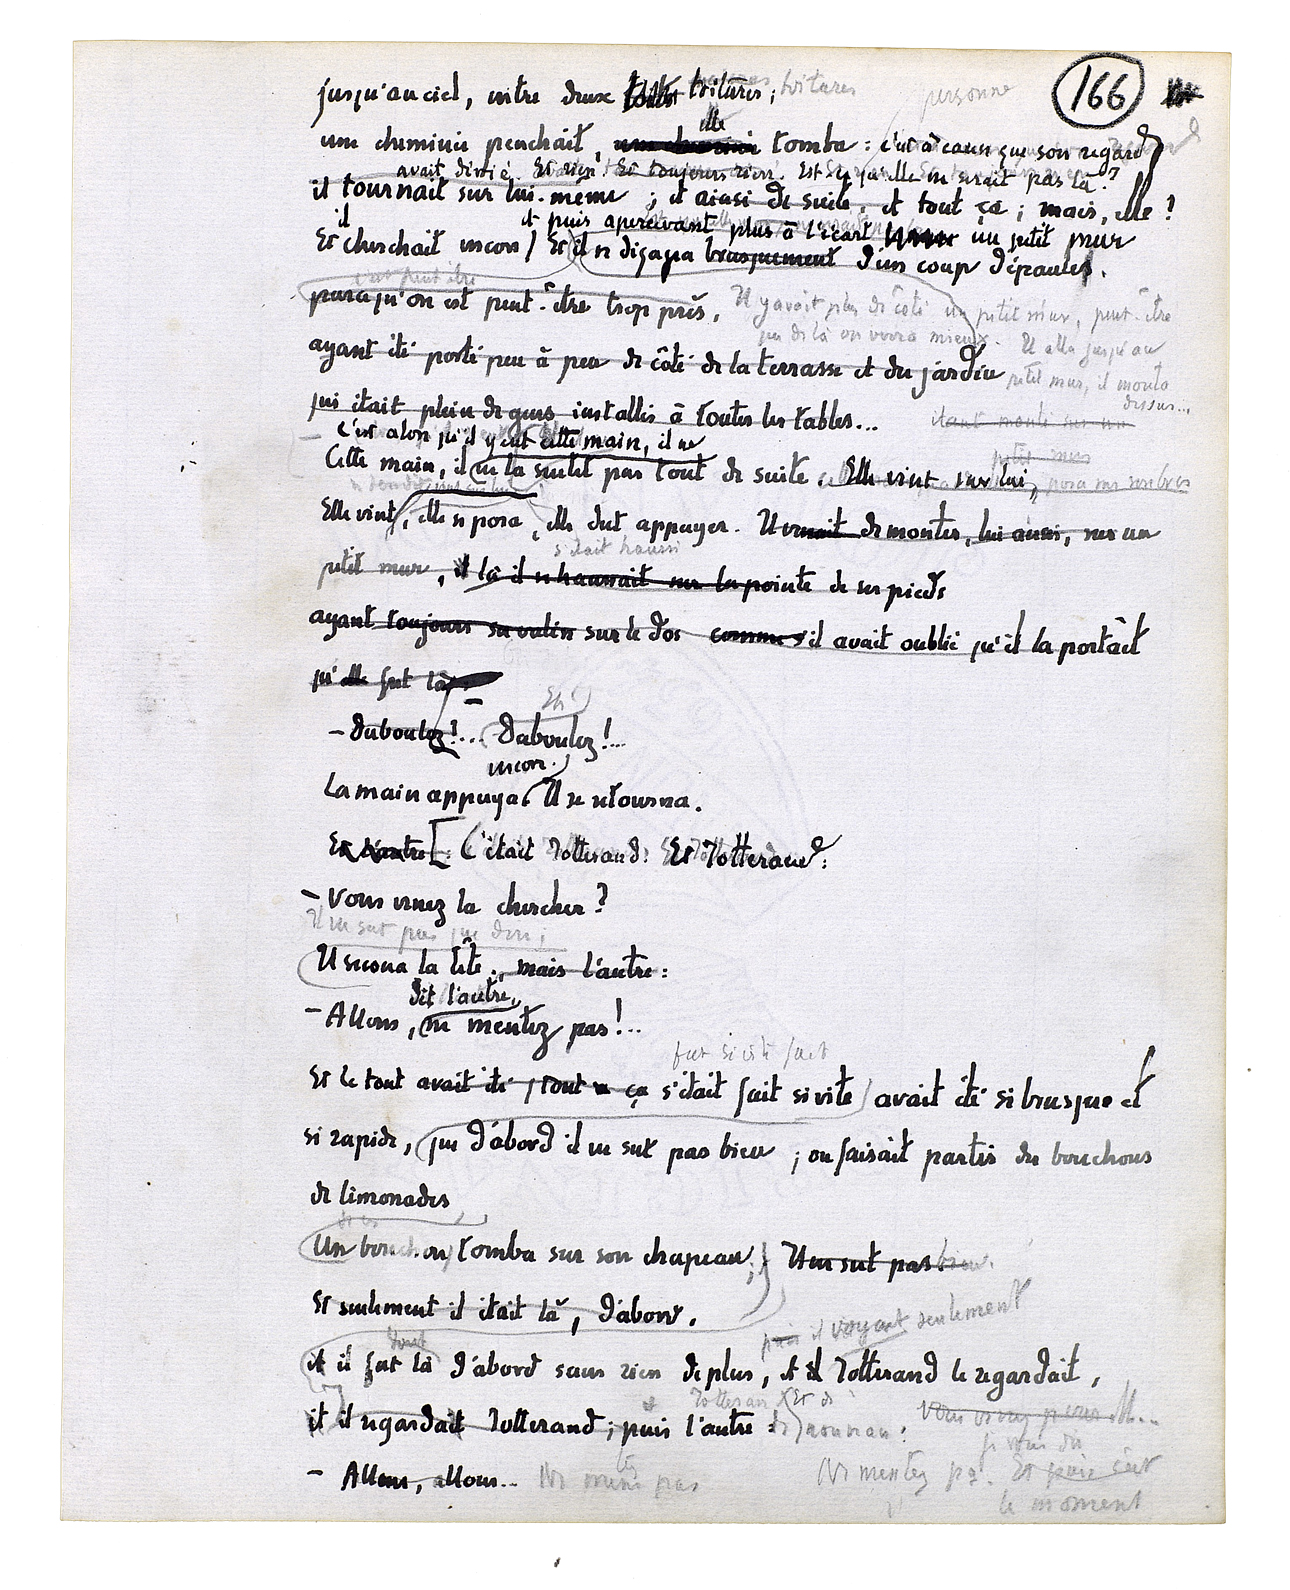 166
jusqu'au ciel, entre deux toits toitures ; toitures personne
elle
une cheminée penchait, une cheminée tomba : c'est à cause que son regard
avait dévié. Et rien ! Et toujours rien. Est-ce qu'elle ne serait pas là ?
il tournait sur lui-même ; et ainsi de suite, et tout ça ; mais, elle ?
il et puis apercevant plus à l'écart un petit mur
Et cherchait encore / Et il se dégagea brusquement d'un coup d'épaules.
c'est peut-être
parce qu'on est peut-être trop près, Il y avait plus de côté un petit mur, peut-être
que de là on verra mieux. Il alla jusqu'au
ayant été porté peu à peu de côté de la terrasse et du jardin petit mur, il monta
dessus...
qui était plein de gens installés à toutes les tables... étant monté sur un
petit mur
C'est alors qu'il y eut cette main, il ne
Cette main, il ne la sentit pas tout de suite. Elle vint sur lui, posa
Elle vint, elle se posa, elle dut appuyer. Il venait de monter, lui aussi, sur un
s'était haussé
petit mur, et là il se haussait sur la pointe de ses pieds
ayant toujours sur le dos comme s'il avait oublié qu'il la portait
qu'elle fut là
Eh !
– Daboulez !... Daboulez !...
encore.
La main appuya. Il se retourna.
Et l'autre [ C'était Jotterand. Et Jotterand :
– Vous venez la chercher ?
Il ne sut pas que dire ;
Il secoua la tête, mais l'autre :
dit l'autre,
– Allons, ne mentez pas !..
fut si vite fait
Et le tout avait été / tout ça s'était fait si vite / avait été si brusque et
si rapide, que d'abord il ne sut pas bien ; on faisait partir des bouchons
de limonades
de ces
Un bouchon tomba sur son chapeau ; Il ne sut pas bien.
Et seulement il était là, d'abord.
puis il voyant seulement
dont
et il fut là d'abord sans rien de plus, et Jotterand le regardait,
Jotterand Et de
et il regardait Jotterand ; puis l'autre : nouveau : Vous venez pour elle...
je vous dis
– Allons, allons... Ne mens pas Ne mentez pas. Et puis c'est
le moment